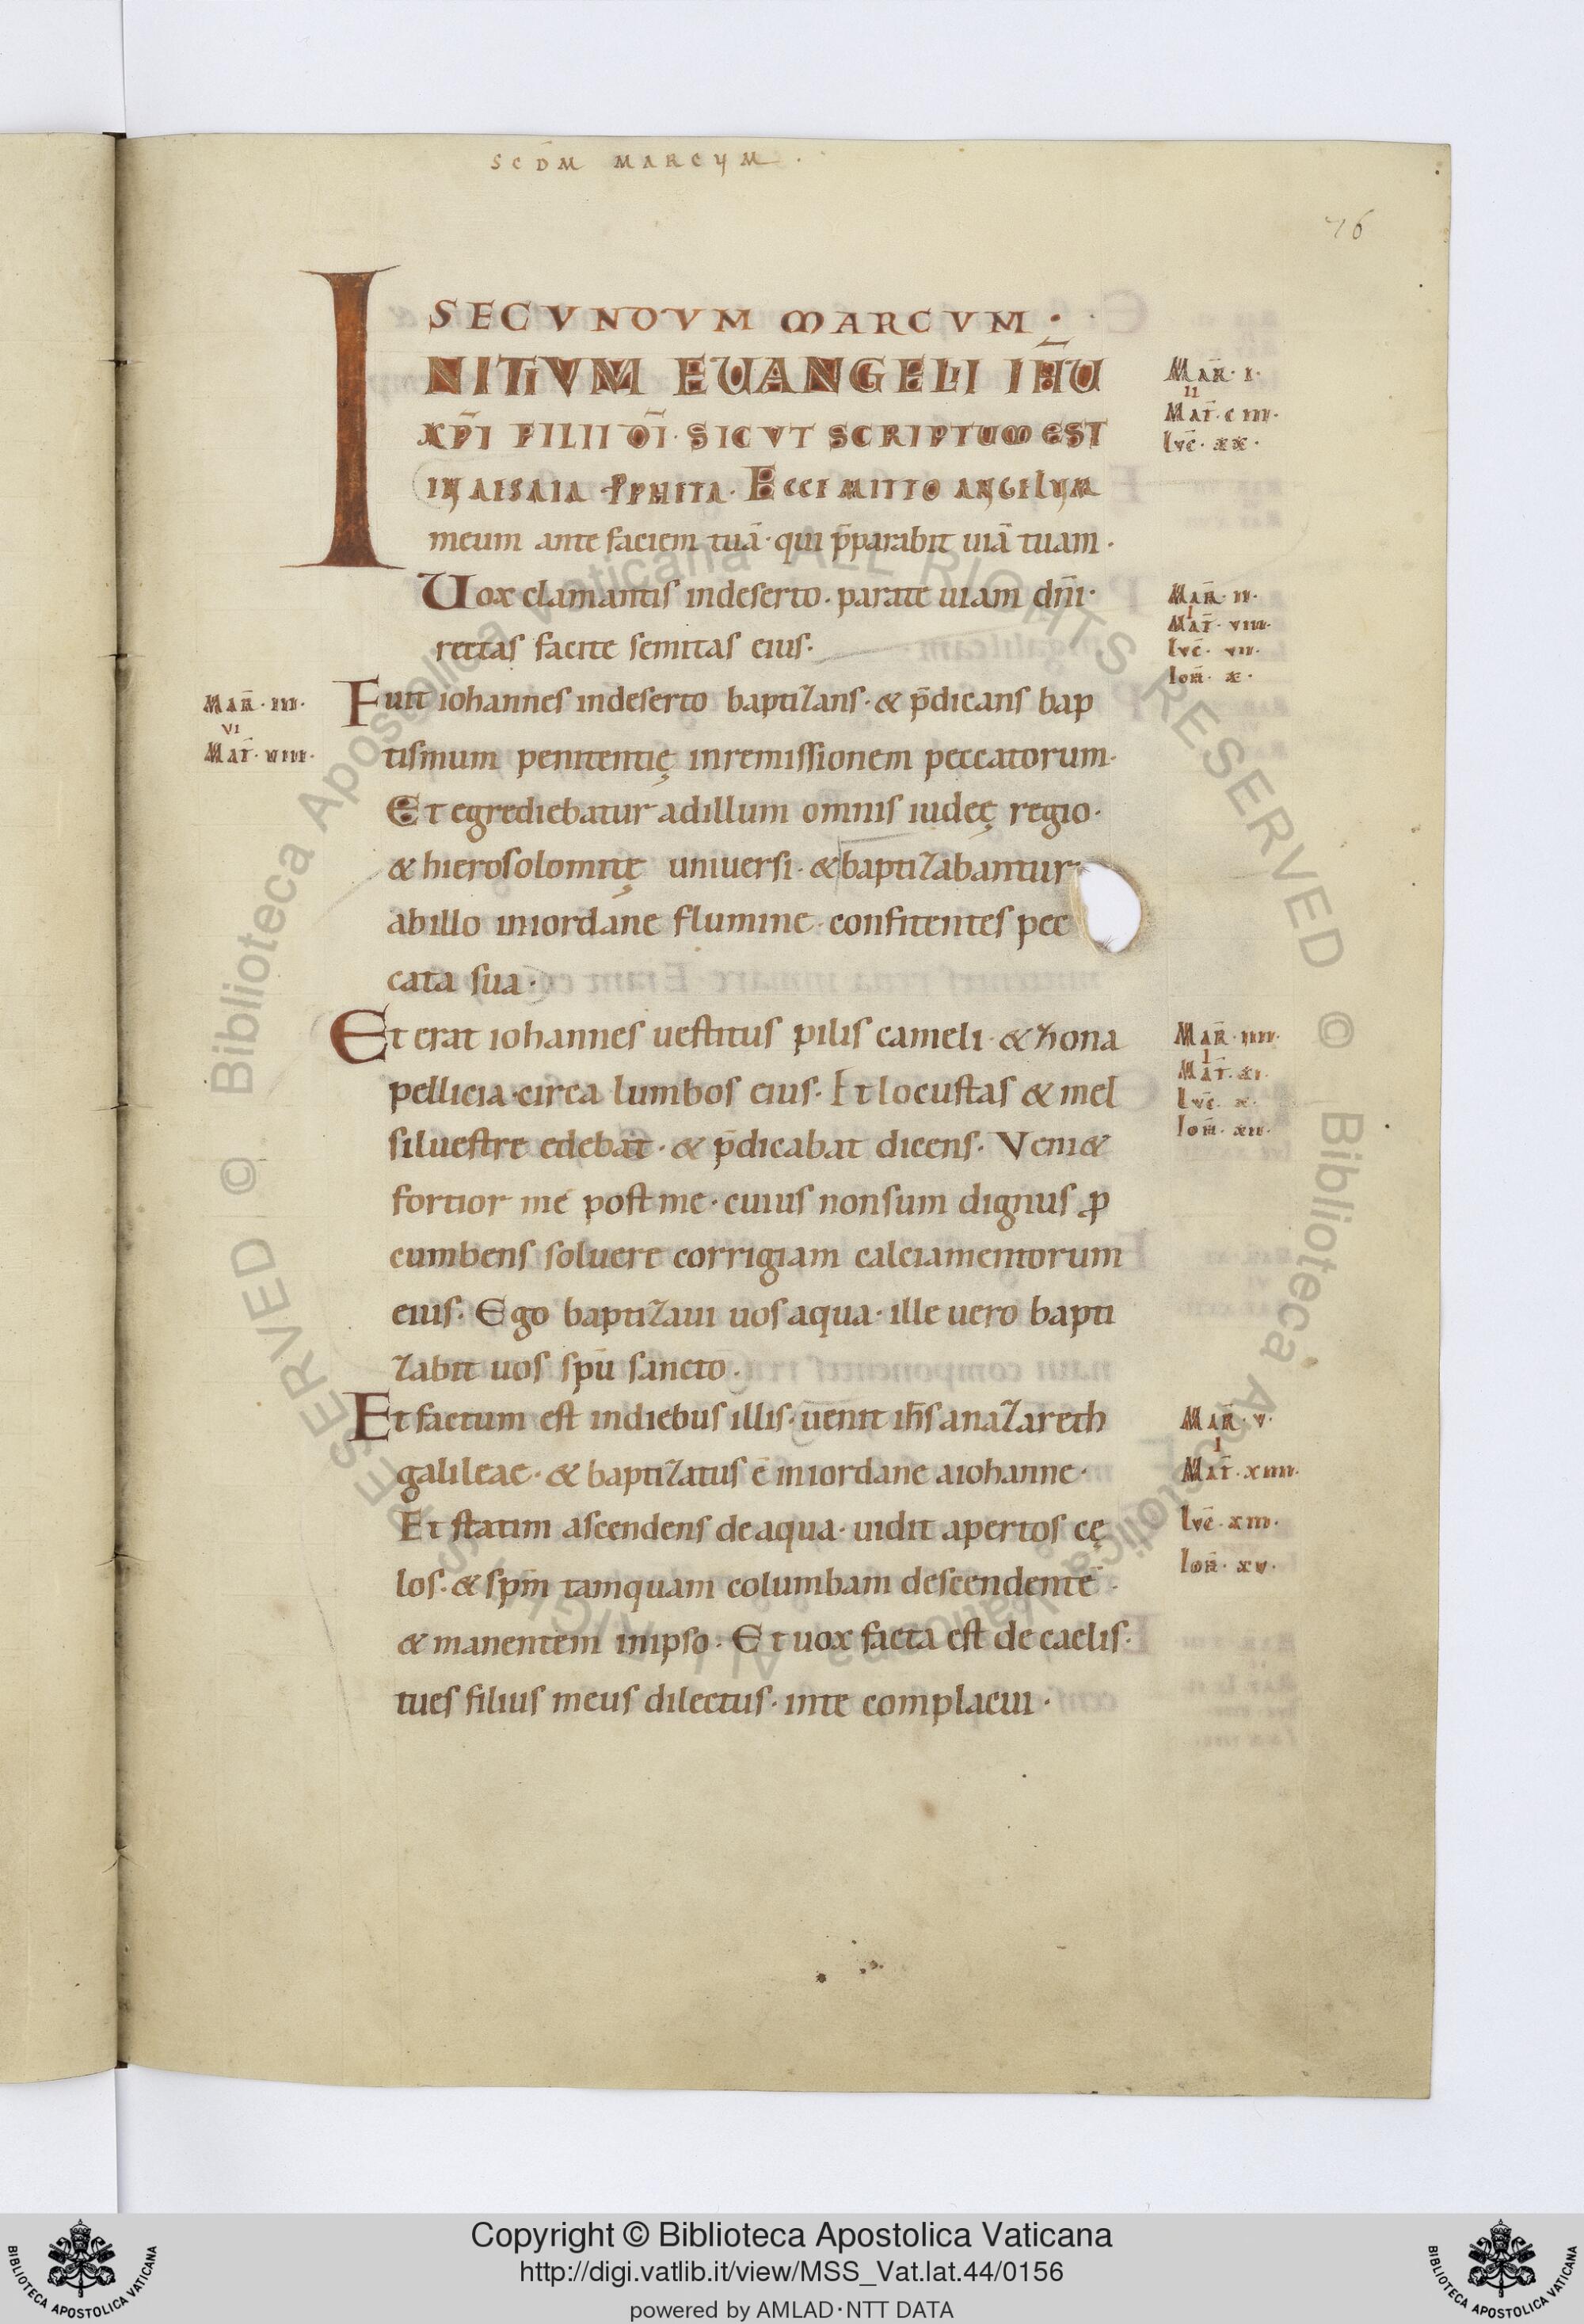 SCD̄M MARCUM ·
76
SECVNDVM MARCVM ·
INITIVM EUANGELI IH̄U
XP̄I FILII DĪ · SICVT SCRIPTUM EST
IN AESAIA PPHETA · ECCE MITTO ANGELUM
meum ante faciem tuā · qui p̄parabit uiā tuam ·
Uox clamantis indeserto · parate uiam dn̄i ·
rectas facite semitas eius ·
Fuit iohannes indeserto baptizans · & p̄dicans bap
tismum penitentię inremissionem peccatorum ·
Et egrediebatur adillum omnis iudeę regio ·
& hierosolomitę uniuersi · & baptizabantur
abillo iniordane flumine · confitentes pec
cata sua ·
Et erat iohannes uestitus pilis cameli · & zona
pellicia · circa lumbos eius · Et locustas & mel
siluestre edebat · & p̄dicabat dicens · Veni&
fortior me post me · cuius nonsum dignus ꝓ
cumbens soluere corrigiam calciamentorum
eius · Ego baptizaui uos aqua · ille uero bapti
zabit uos spū sancto ·
Et factum est indiebus illis · uenit ih̄s anazareth
galileae · & baptizatus ē iniordane aiohanne ·
Et statim ascendens deaqua · uidit apertos cę
los · & spm̄ tamquam columbam descendentē ·
& manentem inipso · Et uox facta est de caelis ·
tues filius meus dilectus · inte complacui ·
MAR̄ · I ·
II
MAT̄ · C III ·
LVC̄ · XX ·
MAR̄ · II ·
I
MAT̄ · VIII ·
LVC̄ · VII ·
IOH̄ · X ·
MAR̄ · III ·
VI
MAT̄ · VIIII ·
MAR̄ · IIII ·
I
MAT̄ · XI ·
LVC̄ · X ·
IOH̄ · XII ·
MAR̄ · V ·
I
MAT̄ · XIIII ·
LVC̄ · XIII ·
IOH̄ · XV ·
© Biblioteca Apostolica Vaticana ALL RIGHTS RESERVED
© Biblioteca Apostolica Vaticana ALL RIGHTS RESERVED
Copyright © Biblioteca Apostolica Vaticana
http://digi.vatlib.it/view/MSS_Vat.lat.44/0156
powered by AMLAD·NTT DATA
BIBLIOTECA APOSTOLICA VATICANA
BIBLIOTECA APOSTOLICA VATICANA